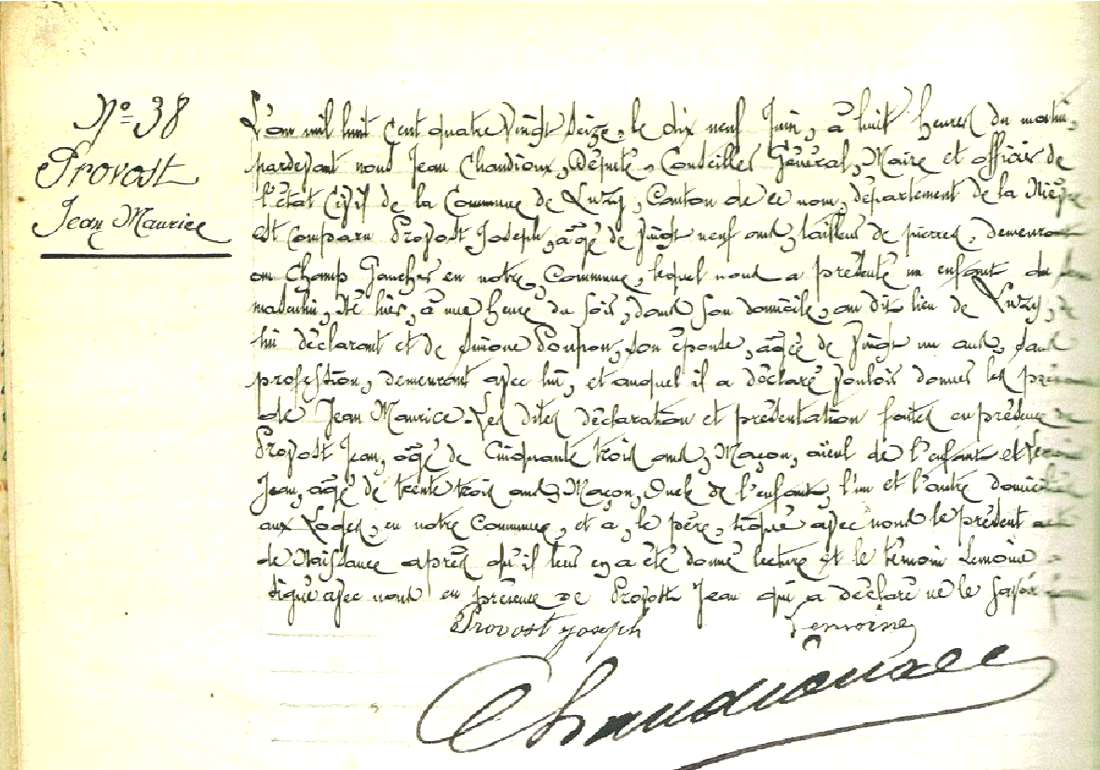 N° 38
Provost
Jean Maurice
L'an mil huit cent quatre vingt seize, le dix neuf Juin, à huit heures du matin,
pardevant nous Jean Chandioux, Député, Conseiller Général, Maire et officier de
l'état civil de la Commune de Luzy, Canton de ce nom, département de la Nièvre
est comparu Provost Joseph, âgé de vingt neuf ans, tailleur de pierres, demeurant
en Champ Gaucher en notre Commune, lequel nous a présenté un enfant du
masculin, né hier, à une heure du soir, dans son domicile, au dit lieu de Luzy, de
lui déclarant et de Simone Poupon, son épouse, âgée de vingt un ans, sans
profession, demeurant avec lui, et auquel il a déclaré vouloir donner les
de Jean Maurice. Les dites déclaration et présentation faites en présence de
Provost Jean, âgé de Cinquante trois ans, Maçon, aïeul de l'enfant et
Jean, âgé de trente trois ans, Maçon, Oncle de l'enfant, l'un et l'autre
aux Loges, en notre Commune, et a, le père, signé avec nous le présent
de Naissance après qu'il leur en a été donné lecture et le témoin Lemoine
signé avec nous en présence de Provost Jean qui a déclaré ne le savoir
Provost Joseph
Lemoine
Chandioux